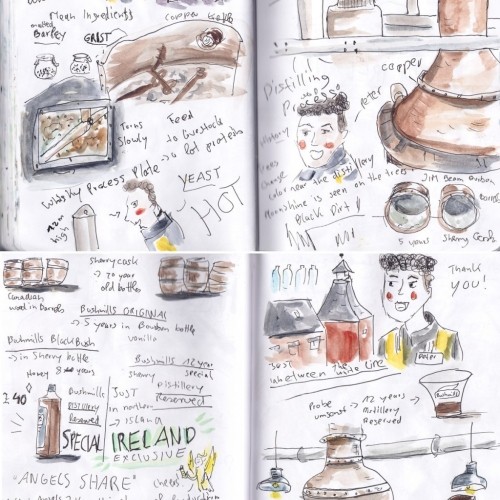 Main Ingredients
copper
unmalted
Barley
GRIST
Turns
Slowly
Feed
to livestock
Whisky Process Plate
22m
high
YEAST
HOT
Distilling
Process
Peter
copper
trees
change
color near the distillery
Moonshine is seen on the trees
Black Dirt!
JIM Beam Burbon
5 years Sherry Cask
Sherry cask
→ 20 year
old bottles
Canadian
wood in Barrels
Bushmills ORIGINAL
→ 5 years in Bourbon bottle
vanilla
Bushmills BlackBush
in Sherry bottle
Honey 8 years
Bushmills 12 year
Sherry special
distillery
Reserved
£40
Bushmills
Distillery
Reserved
JUST
in northern
→ ISLAND
SPECIAL IRELAND
EXCLUSIVE
"ANGELS SHARE"
cheers
THANK
YOU!
Peter
JUST
inbetween White Line
Probe
→ 12 years
distillery
Reserved
Bushmills